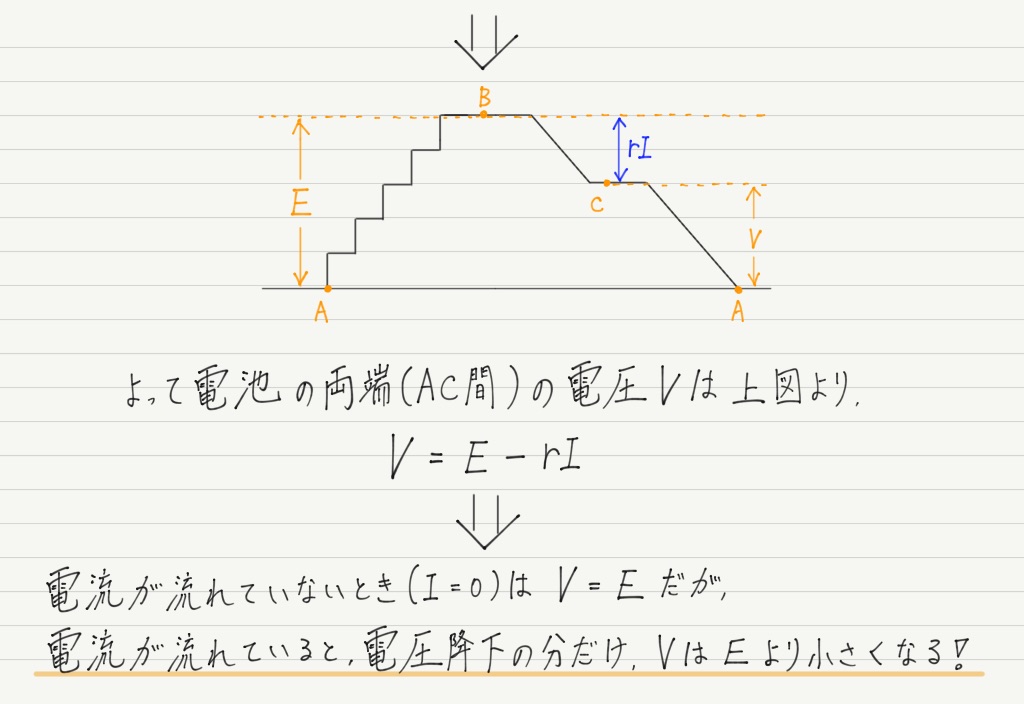 B
rI
E
C
V
A
A
よって電池の両端(AC間)の電圧Vは上図より,
V = E - rI
電流が流れていないとき(I=0)は V = E だが,
電流が流れていると,電圧降下の分だけ,VはEより小さくなる!